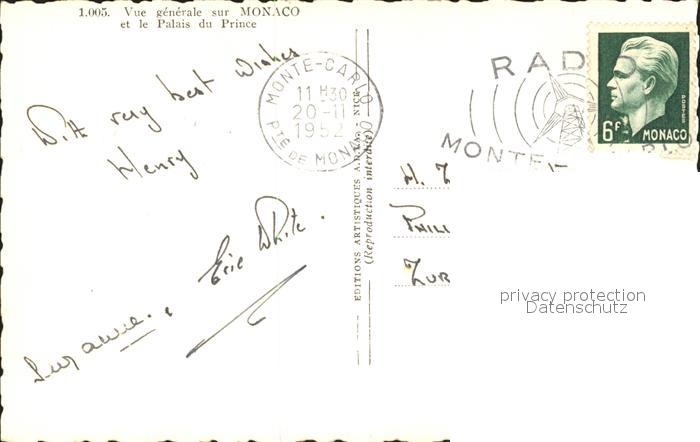 1.005. Vue générale sur MONACO
et le Palais du Prince
With very best Wishes
Henry
Eric White.
Suzanne.
EDITIONS ARTISTIQUES
NICE
(Reproduction interdite)
MONTE-CARLO
11 H30
20-11
1952
PTÉ DE MONACO
RAD
MONTE-
6F
POSTES
MONACO
H. T
PHILI
ZUR
privacy protection
Datenschutz